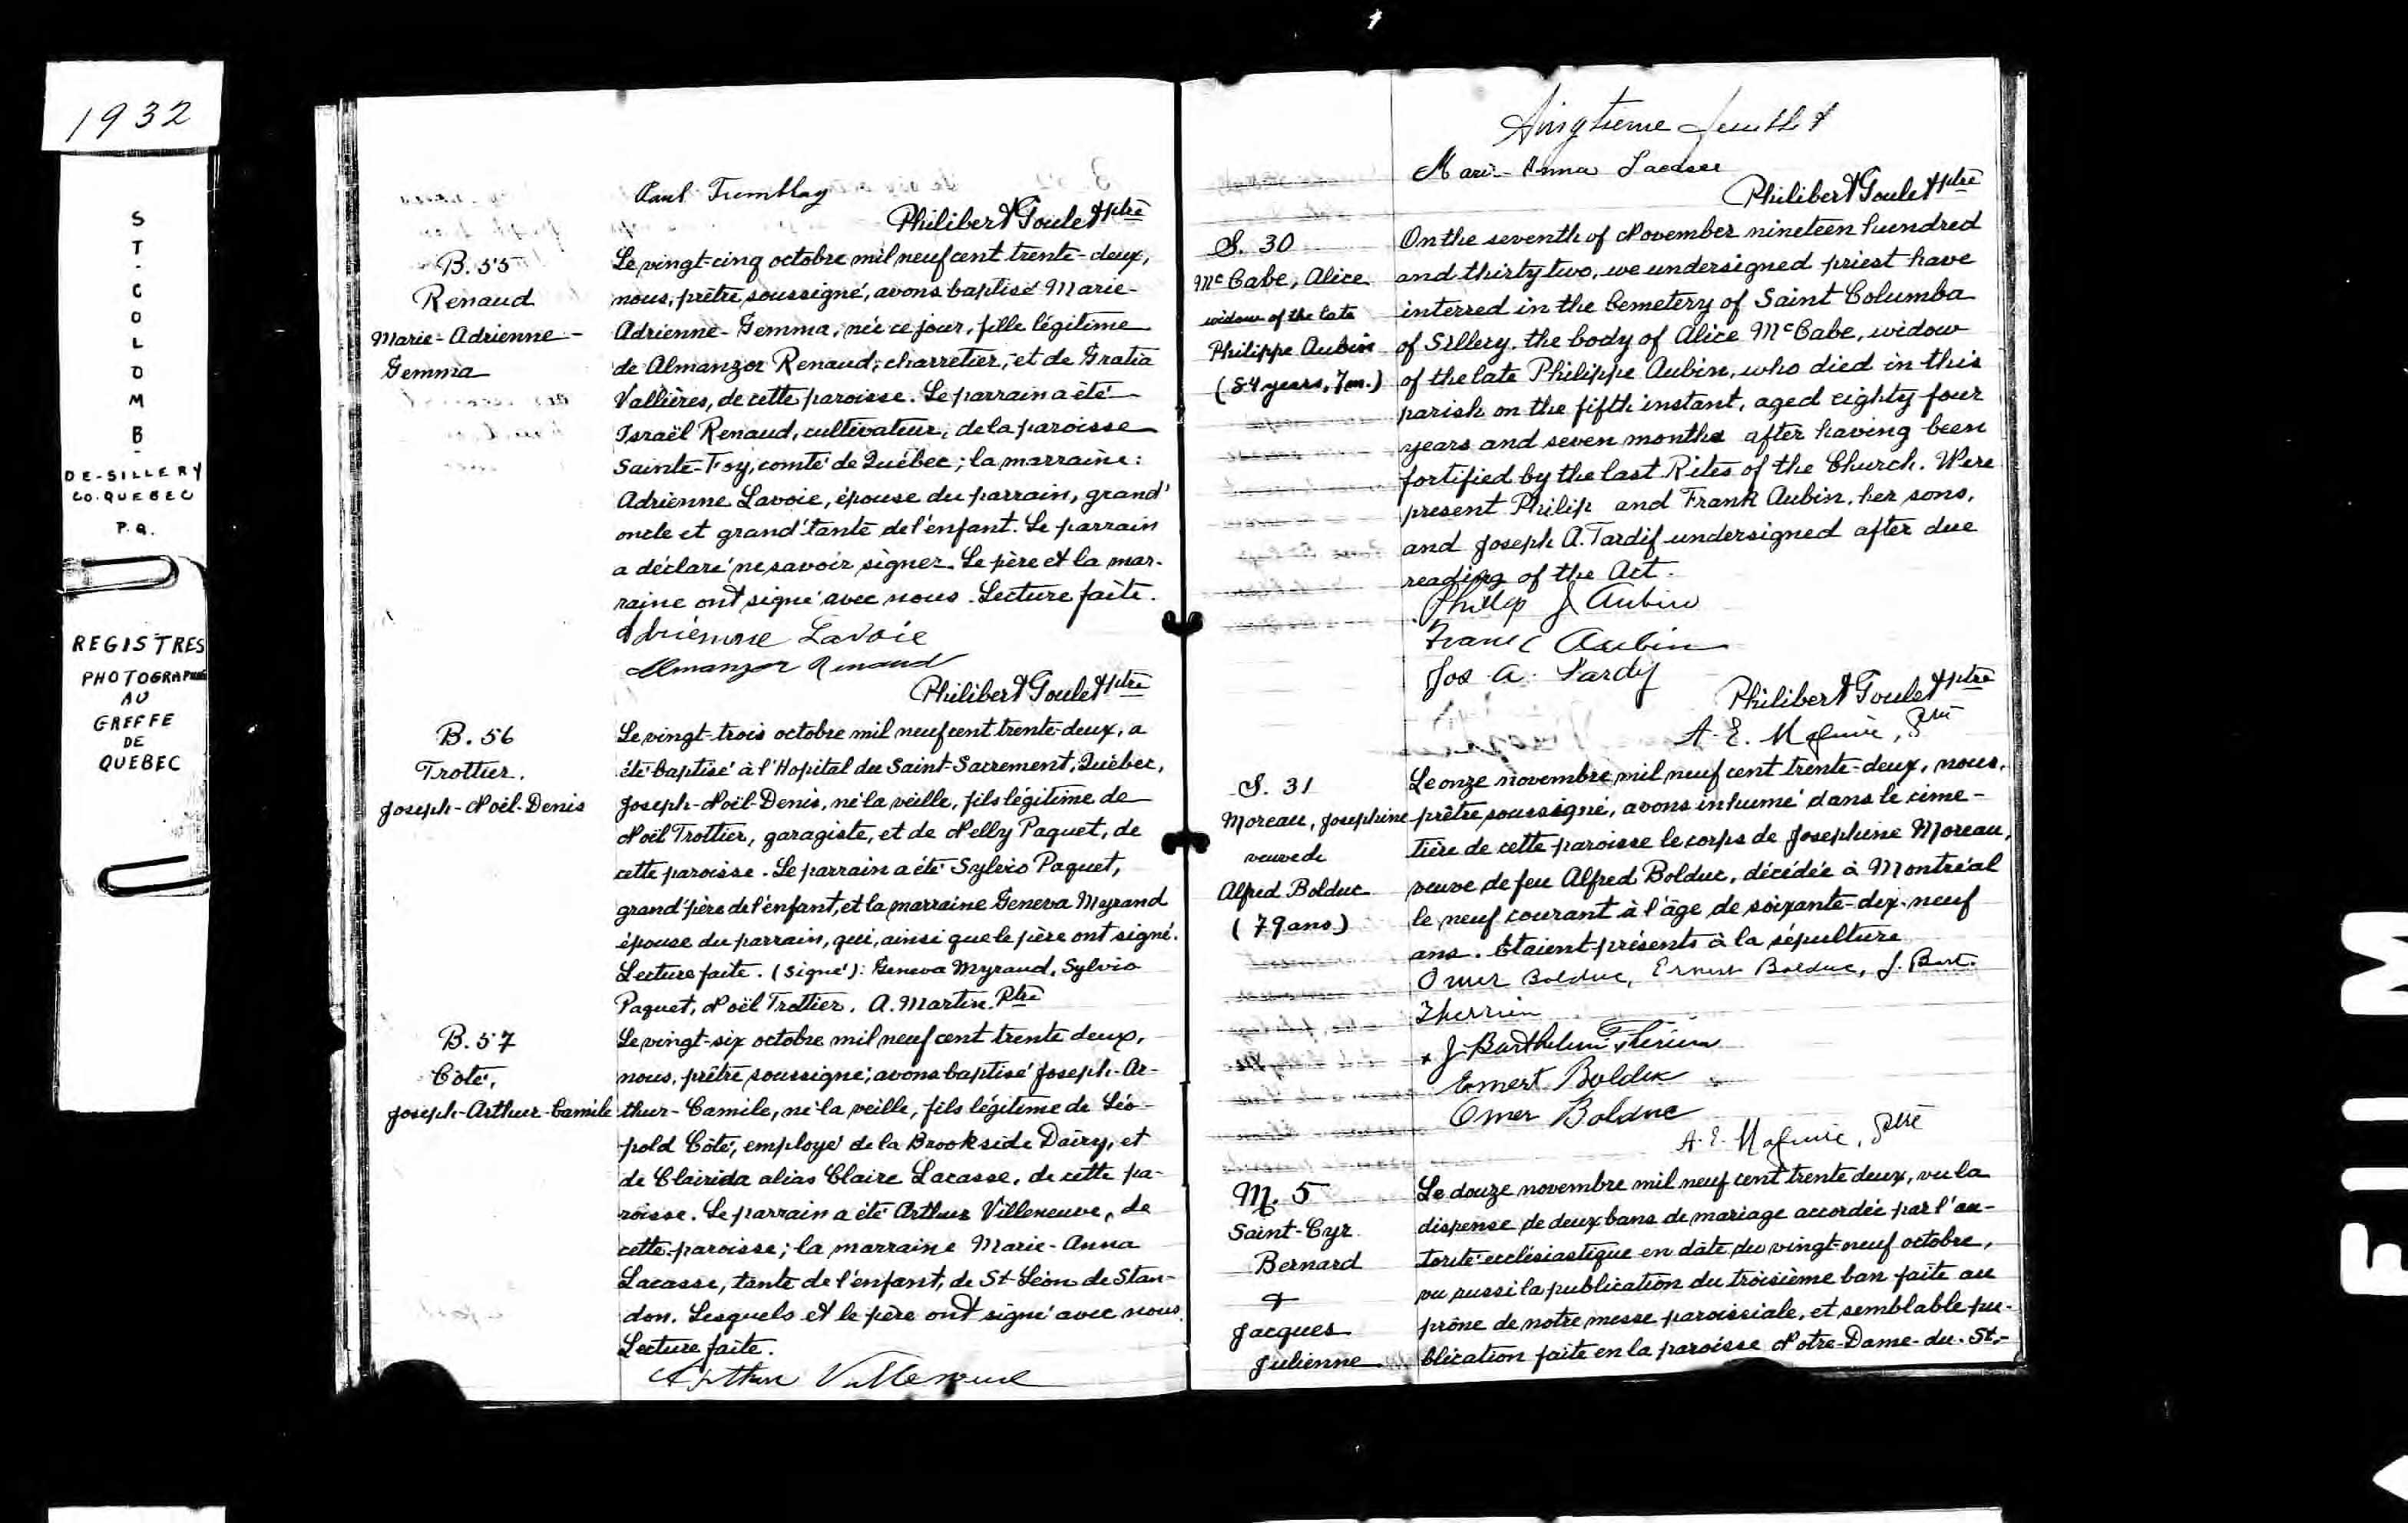 1932
ST. COLOMB
DE-SILLERY
CO. QUEBEC
P.Q.
REGISTRES
PHOTOGRAPHIÉS
AU
GREFFE
DE
QUEBEC
Paul Tremblay
Philibert Goulet ptre
B. 55
Renaud
Marie-Adrienne-
Gemma
Le vingt-cinq octobre mil neuf cent trente-deux,
nous, prêtre soussigné, avons baptisé Marie-
Adrienne-Gemma, née ce jour, fille légitime
de Almanzor Renaud, charretier, et de Gratia
Vallières, de cette paroisse. Le parrain a été
Israël Renaud, cultivateur, de la paroisse
Sainte-Foy, comté de Québec; la marraine:
Adrienne Lavoie, épouse du parrain, grand'
oncle et grand'tante de l'enfant. Le parrain
a déclaré ne savoir signer. Le père et la mar-
raine ont signé avec nous. Lecture faite.
Adrienne Lavoie
Almanzor Renaud
Philibert Goulet ptre
B. 56
Trottier.
Joseph-Noël-Denis
Le vingt-trois octobre mil neuf cent trente-deux, a
été baptisé à l'Hopital du Saint-Sacrement, Québec,
Joseph-Noël-Denis, né la veille, fils légitime de
Noël Trottier, garagiste, et de Nelly Paquet, de
cette paroisse. Le parrain a été Sylvio Paquet,
grand'père de l'enfant, et la marraine Geneva Myrand
épouse du parrain, qui, ainsi que le père ont signé.
Lecture faite. (signé): Geneva Myrand, Sylvio
Paquet, Noël Trottier. A. Martin, Ptre
B. 57
Côté,
Joseph-Arthur-Camile
Le vingt-six octobre mil neuf cent trente deux,
nous, prêtre soussigné, avons baptisé Joseph-Ar-
thur-Camile, né la veille, fils légitime de Léo-
pold Côté, employé de la Brookside Dairy, et
de Clairida alias Claire Lacasse, de cette pa-
roisse. Le parrain a été Arthur Villeneuve, de
cette paroisse; la marraine Marie-Anna
Lacasse, tante de l'enfant, de St-Léon de Stan-
don. Lesquels et le père ont signé avec nous.
Lecture faite.
Arthur Villeneuve
Vingtième feuillet
Marie-Anna Lacasse
Philibert Goulet ptre
S. 30
McCabe, Alice
widow of the late
Philippe Aubin
(84 years, 7 m.)
On the seventh of November nineteen hundred
and thirty two, we undersigned priest have
interred in the Cemetery of Saint Columba
of Sillery, the body of Alice McCabe, widow
of the late Philippe Aubin, who died in this
parish on the fifth instant, aged eighty four
years and seven months after having been
fortified by the last Rites of the Church. Were
present Philip and Frank Aubin, her sons,
and Joseph A. Tardif undersigned after due
reading of the Act.
Philip J Aubin
Frank Aubin
Jos. A. Tardif
Philibert Goulet ptre
A. E. Maguire, Ptre
S. 31
Moreau, Josephine
veuve de
Alfred Bolduc
(79 ans)
Le onze novembre mil neuf cent trente-deux, nous,
prêtre soussigné, avons inhumé dans le cime-
tière de cette paroisse le corps de Josephine Moreau,
veuve de feu Alfred Bolduc, décédée à Montréal
le neuf courant à l'âge de soixante-dix-neuf
ans. Étaient présents à la sépulture
Omer Bolduc, Ernest Bolduc, J. Bart.
Therrien
x J Barthelemi Therien
Ernest Bolduc
Omer Bolduc
A. E. Maguire, Ptre
M. 5
Saint-Cyr
Bernard
&
Jacques
Julienne
Le douze novembre mil neuf cent trente deux, vu la
dispense de deux bans de mariage accordée par l'au-
torité ecclésiastique en date du vingt-neuf octobre,
vu aussi la publication du troisième ban faite au
prône de notre messe paroissiale, et semblable pu-
blication faite en la paroisse Notre-Dame-du-St.-
FILM